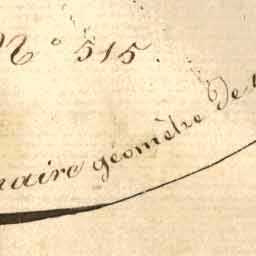 N° 515.
naire géomètre De